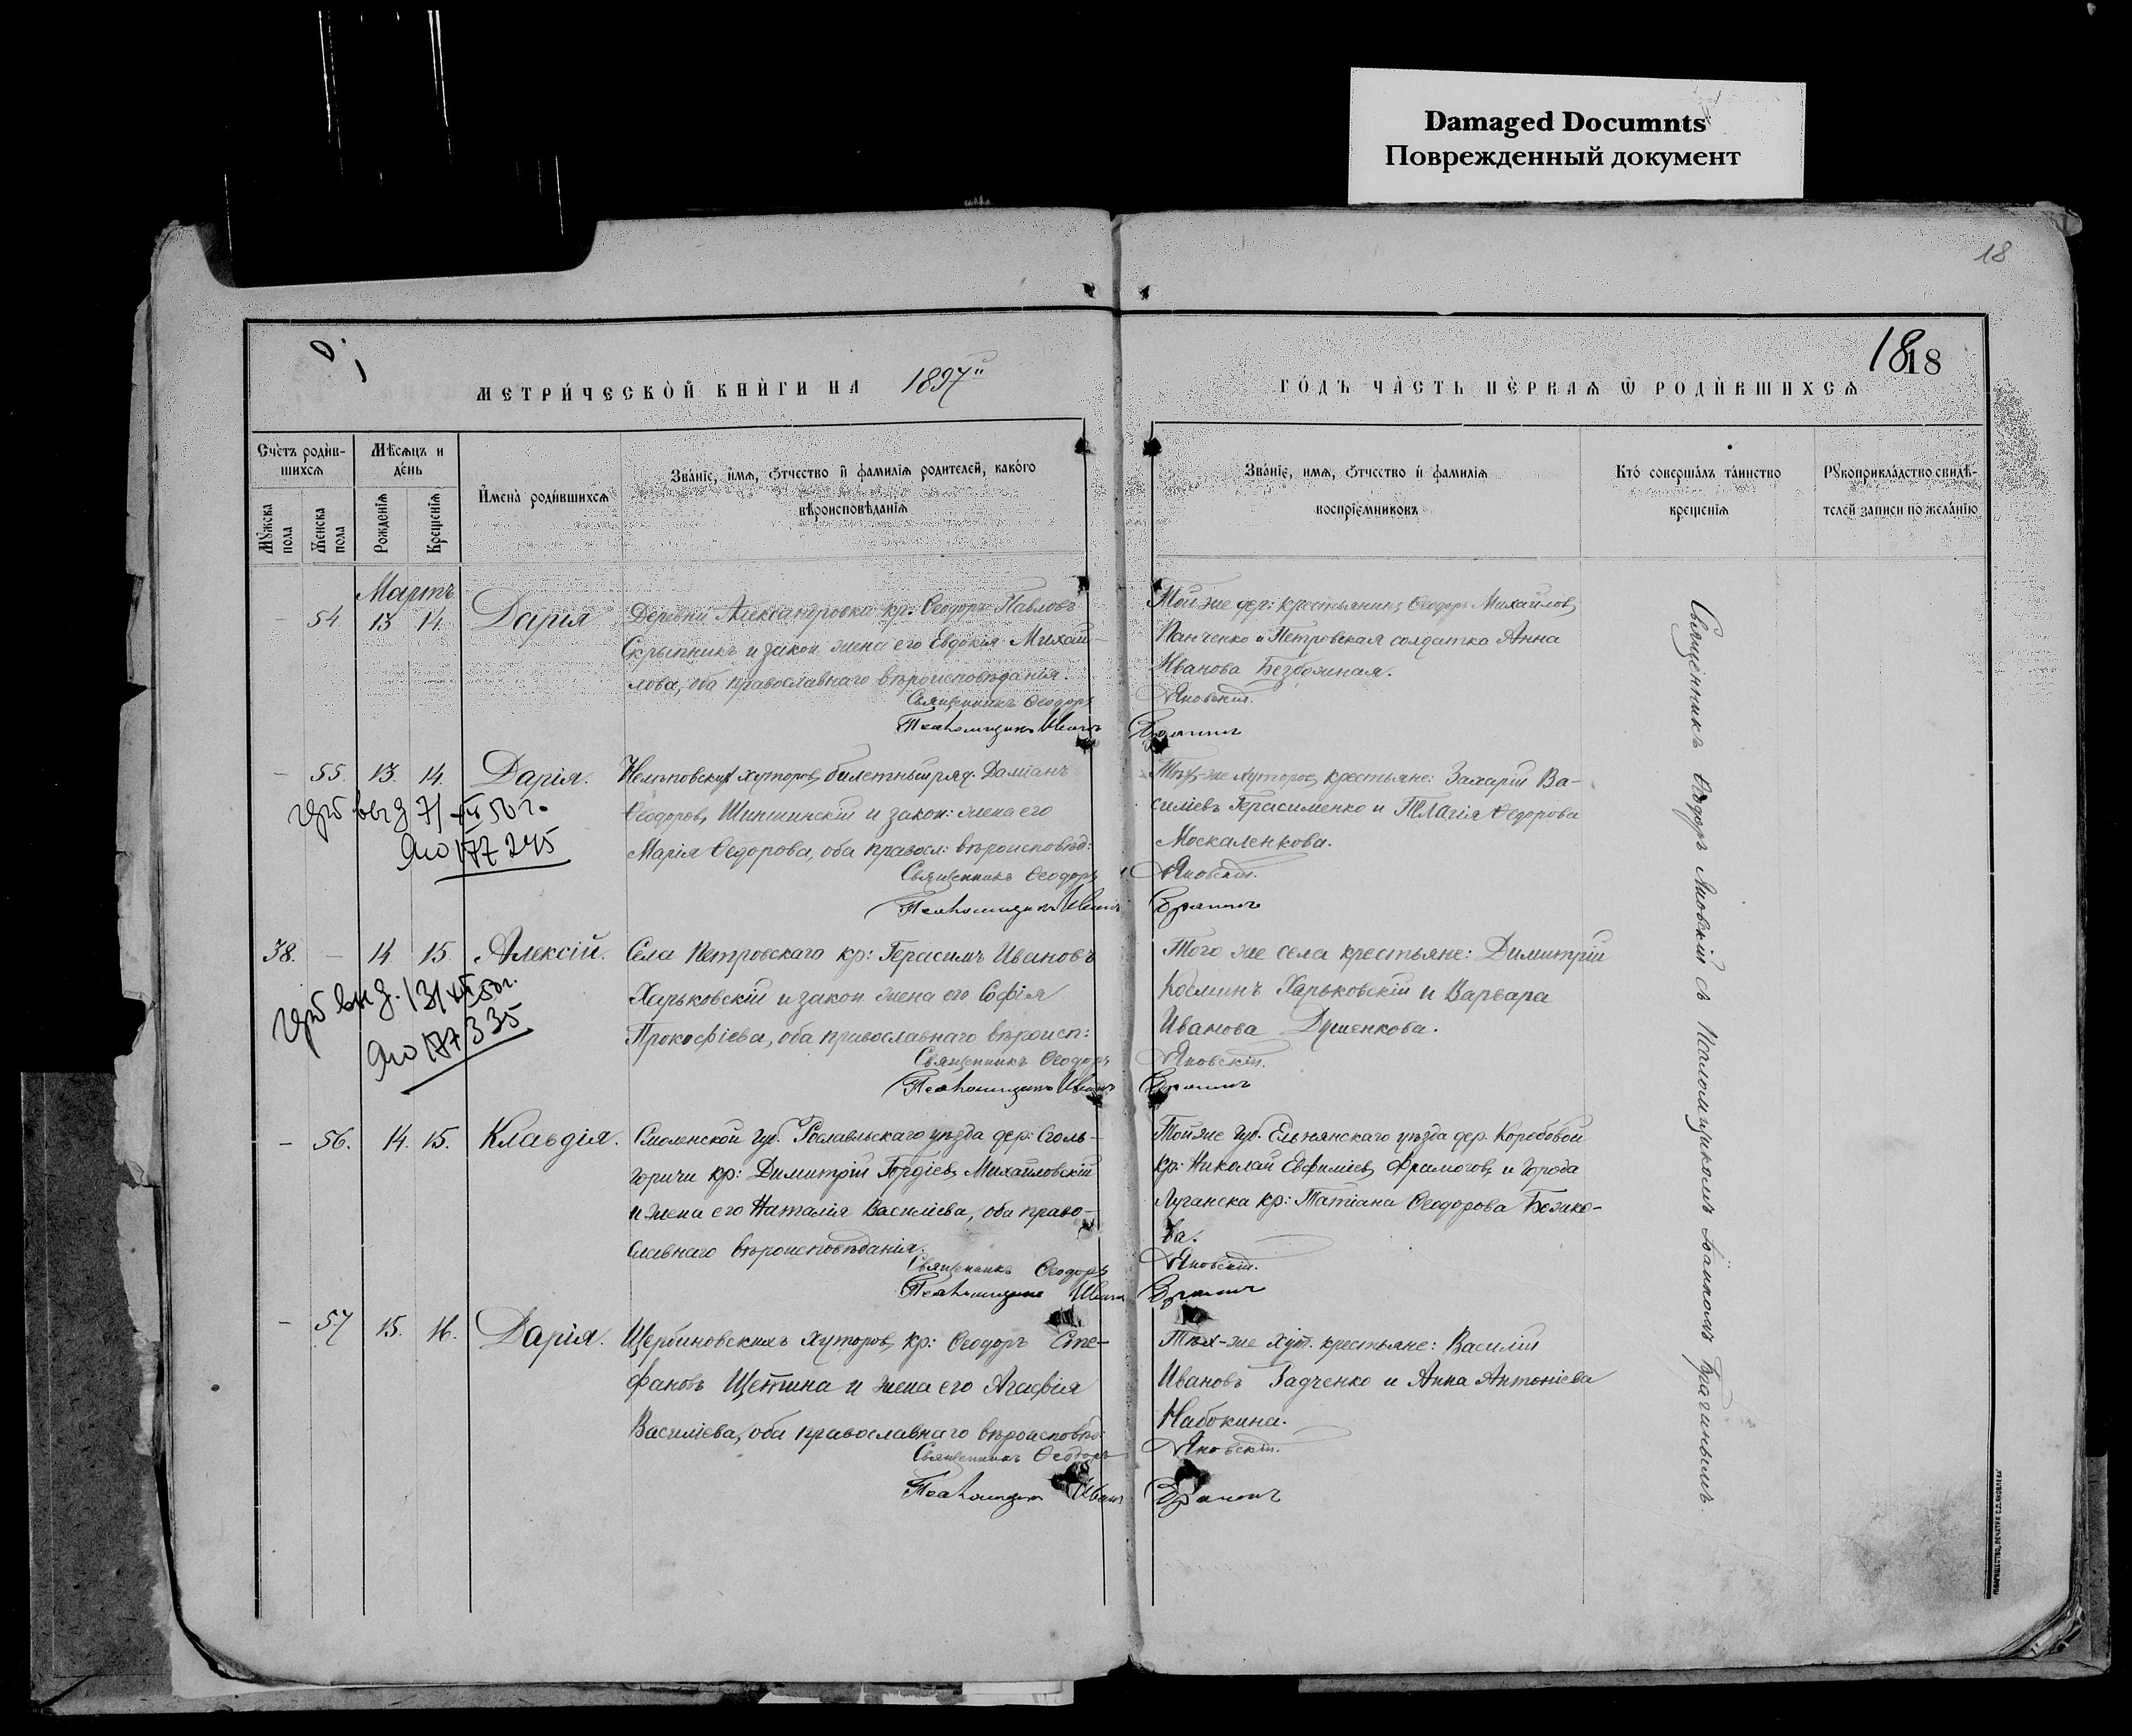 Damaged Documnts
Поврежденный документ
18
18 18
МЕТРИ́ЧЕСКО̀Й КНЍГИ НА 1897й
ГО́ДЪ ЧА̀СТЬ ПЀРВАѦ Ѡ РОДЍВШИХСѦ
Сче́тъ роди̂в-
шихсѧ
Мѣ́сѧцъ и
де́нь
Мꙋ́жска
пола
Же́нска
пола
Рожденїѧ
Крещенїѧ
И҆мена̀ роди́вшихсѧ
Зва́нїе, и҆́мѧ, ѻ҆́тчество и҆ фамилїѧ родителей, како́го
вѣроисповѣ́данїѧ
Зва́нїе, имѧ, ѻ҆́тчество и҆ фамилїѧ
воспрїе́мниковъ
Кто́ соверша́лъ та́инство
крещенїѧ
Рꙋкоприкла́дство свидѣ́-
телей записи по жела́нїю
Мартъ
— 54 13 14. Дарія
Деревни Александровка кр. Ѳеодоръ Павловъ
Скрыпникъ и закон. жена его Евдокія Михай-
лова, оба православнаго вѣроисповѣданія.
Священникъ Ѳеодоръ
Псаломщикъ Иванъ
Той же дер: крестьянинъ Ѳеодоръ Михайловъ
Панченко и Петровская солдатка Анна
Иванова Безбожная.
Яновскій.
— 55. 13. 14. Дарія.
хуторовъ, билетный ряд. Даміанъ
Ѳеодоровъ Шиншинскій и закон: жена его
Марія Ѳедорова, оба правосл: вѣроисповѣд:
Священникъ Ѳеодоръ
Псаломщикъ Иванъ
Тѣхъ-же хуторовъ, крестьяне: Захарій Ва-
силіевъ Герасименко и Пелагія Ѳедорова
Москаленкова.
Яновскій.
7/XII 50 г.
177 245
38. — 14. 15. Алексій.
Села Петровскаго кр: Герасимъ Ивановъ
Харьковскій и закон. жена его Софія
Прокофіева, оба православнаго вѣроисп:
Священникъ Ѳеодоръ
Псаломщикъ Иванъ
Того же села крестьяне: Димитрій
Косминъ Харьковскій и Варвара
Иванова Душенкова.
Яновскій.
13/XII 50 г.
177 335
— 56. 14. 15. Клавдія.
Смоленской губ. Рославльскаго уѣзда дер: Столь-
горичи кр: Димитрій Гордіевъ Михайловскій
и жена его Наталія Василіева, оба право-
славнаго вѣроисповѣданія.
Священникъ Ѳеодоръ
Псаломщикъ Иванъ
Тойже губ. Ельнянскаго уѣзда дер. Коробовой
кр: Николай Евфиміевъ и города
Луганска кр: Татіана Ѳеодорова Божко-
ва.
Яновскій.
— 57 15. 16. Дарія.
Щербиновскихъ хуторовъ, кр: Ѳеодоръ Сте-
фановъ Щетина и жена его Агафія
Василіева, оба православнаго вѣроисповѣд:
Священникъ Ѳеодоръ
Псаломщикъ Иванъ
Тѣхъ-же хут. крестьяне: Василій
Ивановъ Гадченко и Анна Антоніева
Набокина.
Яновскій.
Священникъ Ѳеодоръ Яновскій съ Псаломщикомъ Іоанномъ Брагинымъ.